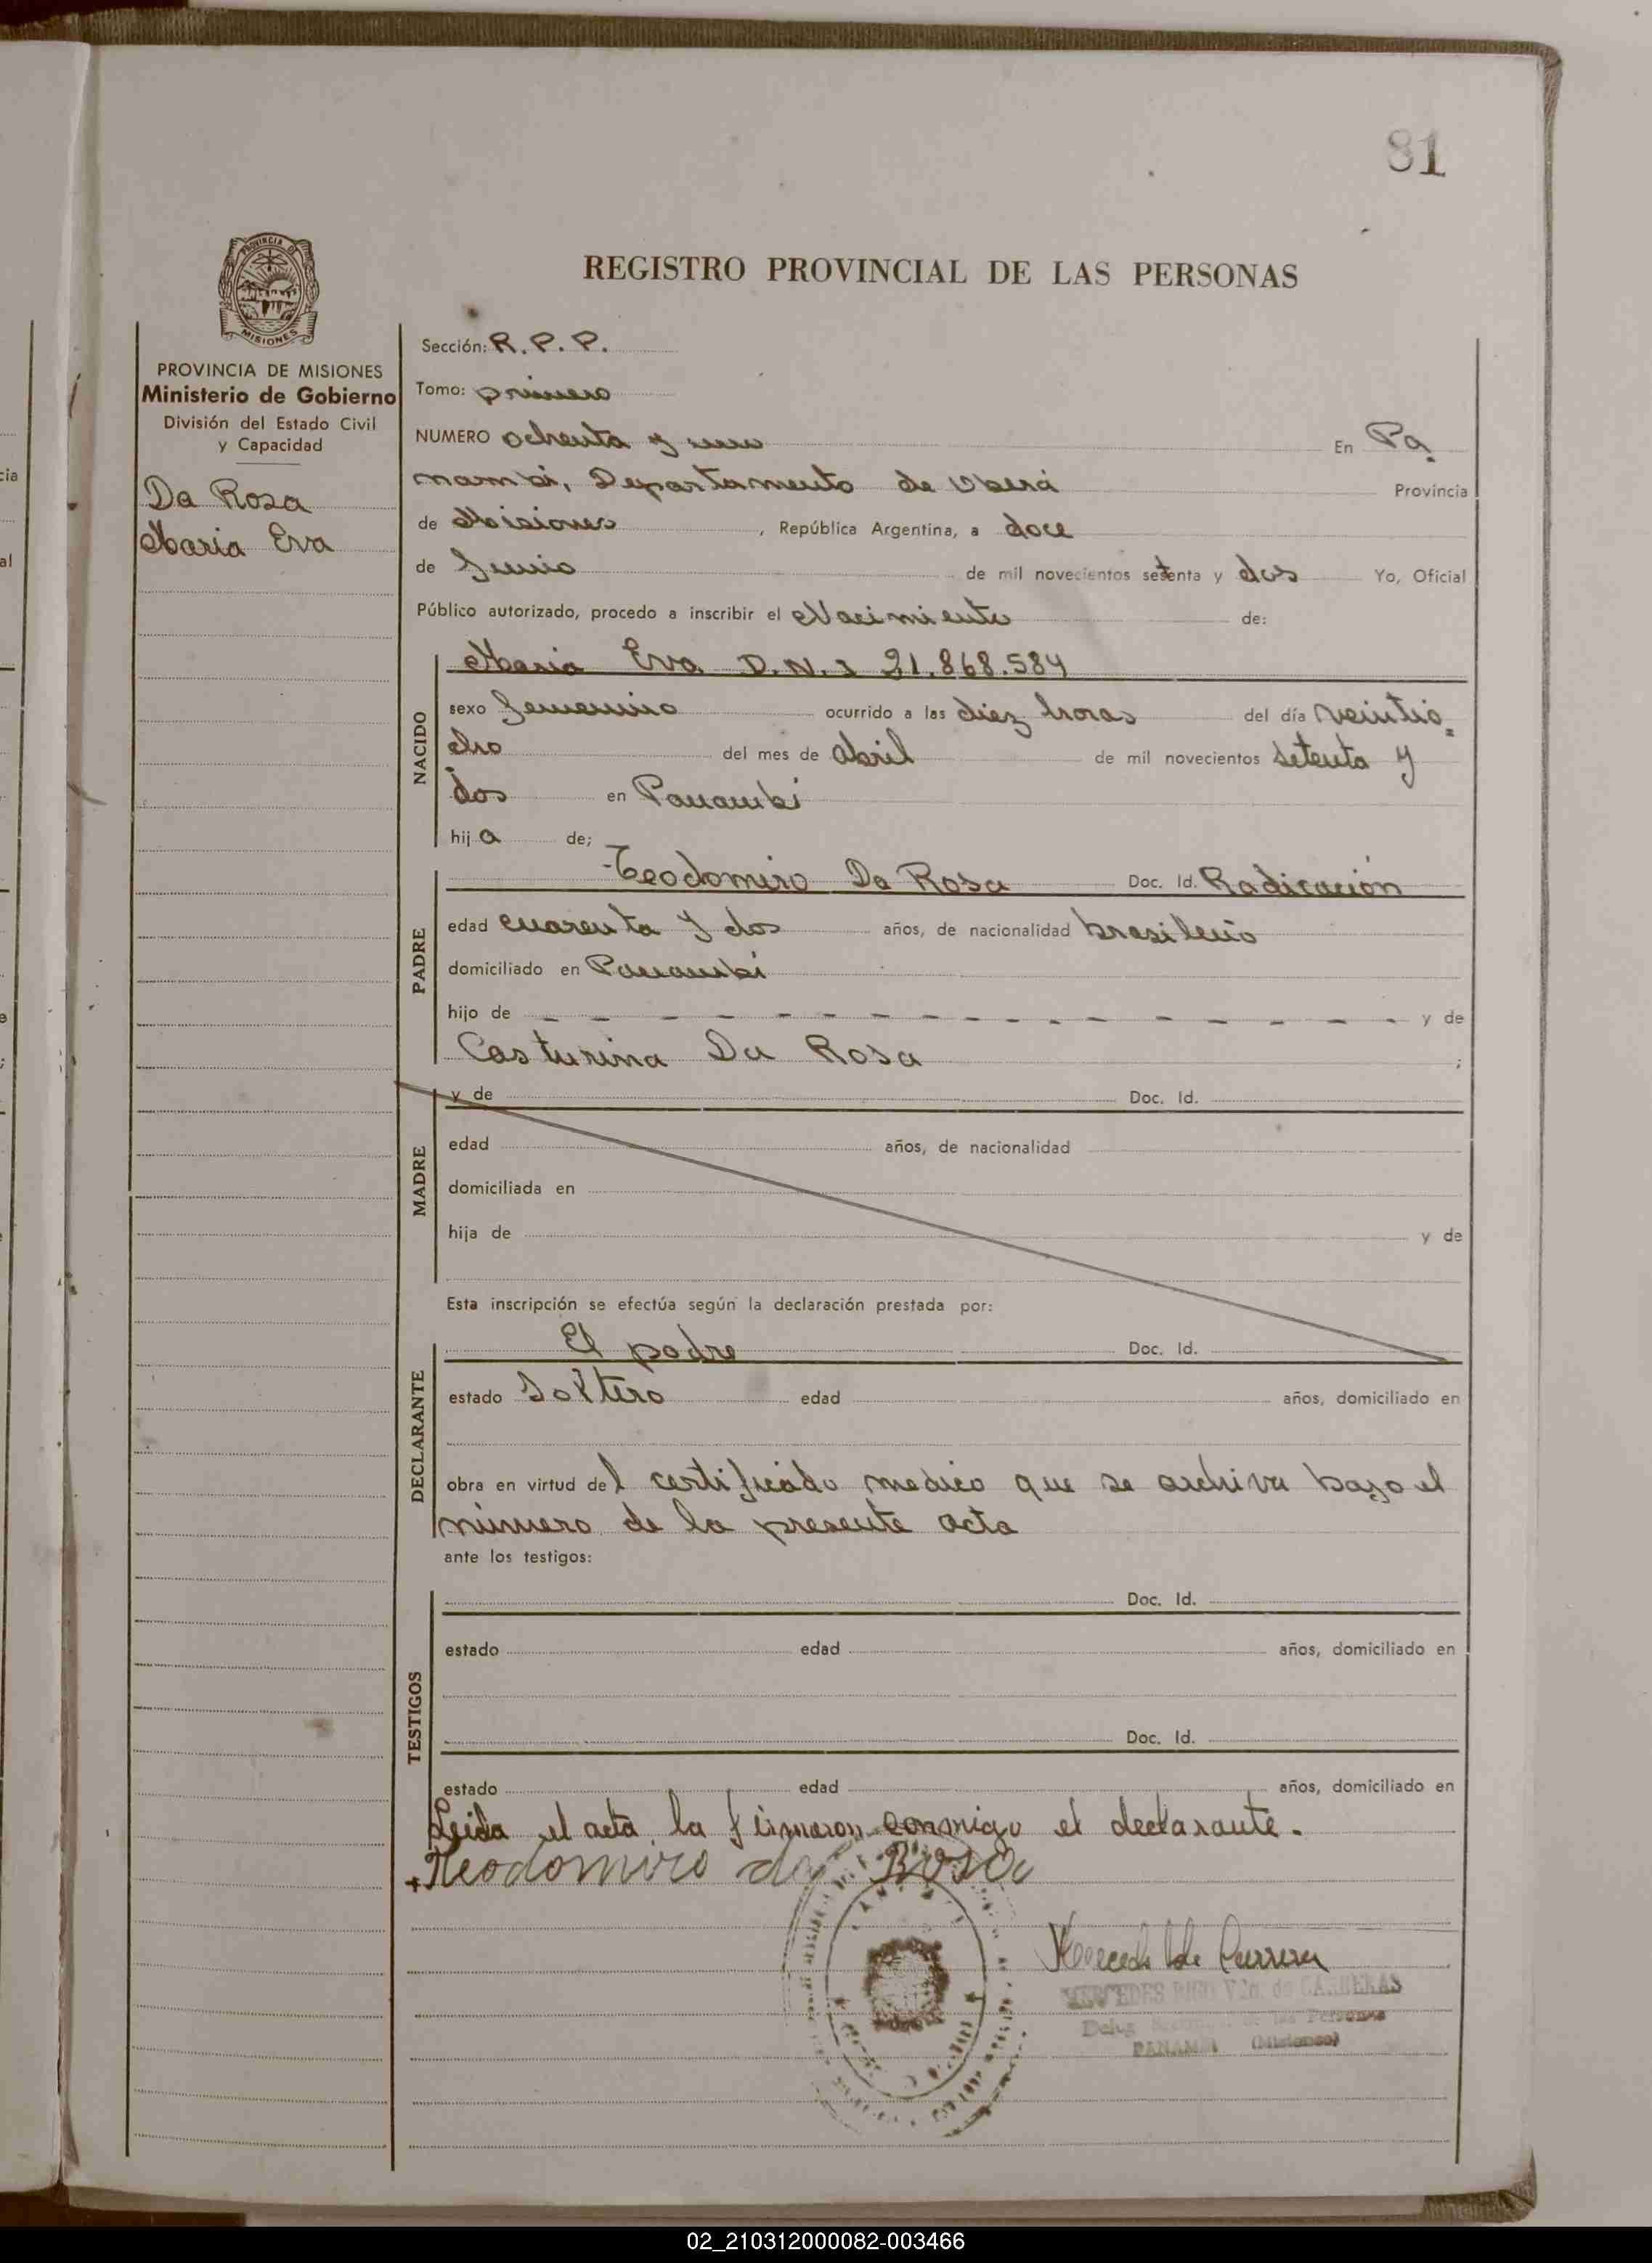 81
PROVINCIA DE
MISIONES
REGISTRO PROVINCIAL DE LAS PERSONAS
PROVINCIA DE MISIONES
Ministerio de Gobierno
División del Estado Civil
y Capacidad
Da Rosa
Maria Eva
Sección: R. P. P.
Tomo: primero
NUMERO ochenta y uno En Pa
nambi, Departamento de Oberá Provincia
de Misiones , República Argentina, a doce
de Junio de mil novecientos setenta y dos Yo, Oficial
Público autorizado, procedo a inscribir el Nacimiento de:
NACIDO
Maria Eva D.N.I 21.868.584
sexo femenino ocurrido a las diez horas del día veintio
cho del mes de Abril de mil novecientos setenta y
dos en Panambi
hij a de;
PADRE
Teodomiro Da Rosa Doc. Id. Radicación
edad cuarenta y dos años, de nacionalidad brasileño
domiciliado en Panambi
hijo de - - - - - - - - - - - - - - - - y de
Casturina Da Rosa ;
MADRE
y de Doc. Id.
edad años, de nacionalidad
domiciliada en
hija de y de
Esta inscripción se efectúa según la declaración prestada por:
DECLARANTE
El padre Doc. Id.
estado Soltero edad años, domiciliado en
obra en virtud del certificado medico que se archiva bajo el
número de la presente acta
ante los testigos:
TESTIGOS
Doc. Id.
estado edad años, domiciliado en
Doc. Id.
estado edad años, domiciliado en
Leida el acta, la firmaron conmigo el declarante.
+Teodomiro da Rosa
MERCEDES Vda. de CARRERAS
Deleg. de las Personas
PANAMBI (Misiones)
02_210312000082-003466